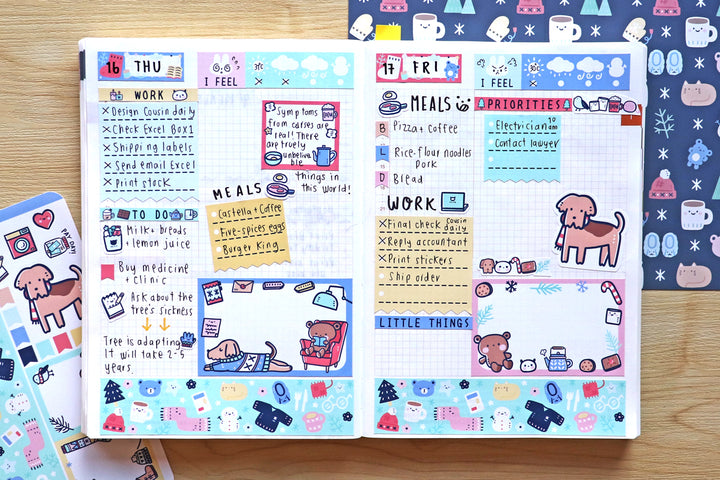 16 THU
I FEEL
3°C
WORK
Design Cousin daily
Check Excel Box1
Shipping labels
Send email Excel
Print stock
Symptoms
from curses are
real! There
are truely
unbelieva
ble
things in
this world!
MEALS
Castella + Coffee
Five-spices eggs
Burger King
TO DO
Milk + breads
+ lemon juice
Buy medicine
+ clinic
Ask about the
tree's sickness
Tree is adapting.
It will take 2-5
years.
17 FRI
I FEEL
MEALS
B Pizza + Coffee
L Rice-flour noodles
Pork
D Bread
PRIORITIES
Electrician 10
am
Contact lawyer
WORK
Final check Cousin
daily
Reply accountant
Print stickers
Ship order
LITTLE THINGS
PAY DAY